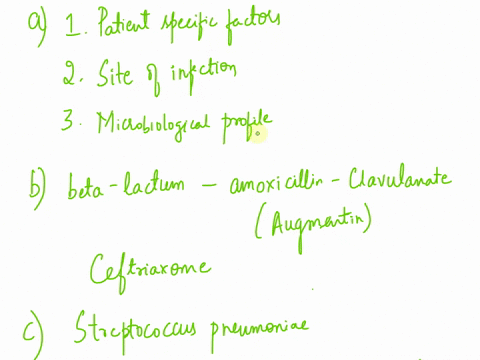 a) 1. Patient specific factors
2. Site of infection
3. Microbiological profile
b) beta-lactum - amoxicillin - Clavulanate
(Augmentin)
Ceftriaxone
c) Streptococcus pneumoniae